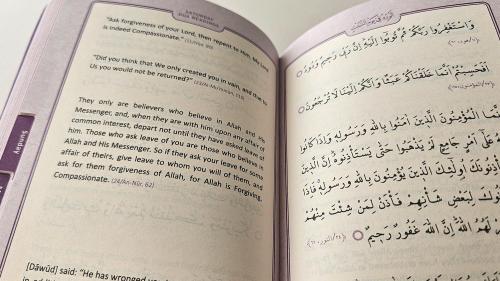 SATURDAY
DUA READING
"Ask forgiveness of your Lord, then repent to Him. My Lord
is indeed Compassionate."
"Did you think that We only created you in vain, and that to
Us you would not be returned?"
They only are believers who believe in Allah and His
Messenger, and, when they are with him upon any affair of
common interest, depart not until they have asked leave of
him. Those who ask leave of you are those who believe in
Allah and His Messenger. So if they ask your leave for some
affair of theirs, give leave to whom you will of them, and
ask for them forgiveness of Allah, for Allah is Forgiving,
Compassionate. (24/An-Nūr, 62)
[Dāwūd] said: "He has wronged you
Sunday
وَاسْتَغْفِرُوا رَبَّكُمْ ثُمَّ تُوبُوا إِلَيْهِ إِنَّ رَبِّي رَحِيمٌ وَدُودٌ
أَفَحَسِبْتُمْ أَنَّمَا خَلَقْنَاكُمْ عَبَثًا وَأَنَّكُمْ إِلَيْنَا لَا تُرْجَعُونَ
الْمُؤْمِنُونَ الَّذِينَ آمَنُوا بِاللَّهِ وَرَسُولِهِ وَإِذَا كَانُوا
عَلَى أَمْرٍ جَامِعٍ لَمْ يَذْهَبُوا حَتَّى يَسْتَأْذِنُوهُ إِنَّ الَّذِينَ
أُولَئِكَ الَّذِينَ يُؤْمِنُونَ بِاللَّهِ وَرَسُولِهِ فَإِذَا
لِبَعْضِ شَأْنِهِمْ فَأْذَنْ لِمَنْ شِئْتَ مِنْهُمْ
لَهُمُ اللَّهَ إِنَّ اللَّهَ غَفُورٌ رَحِيمٌ